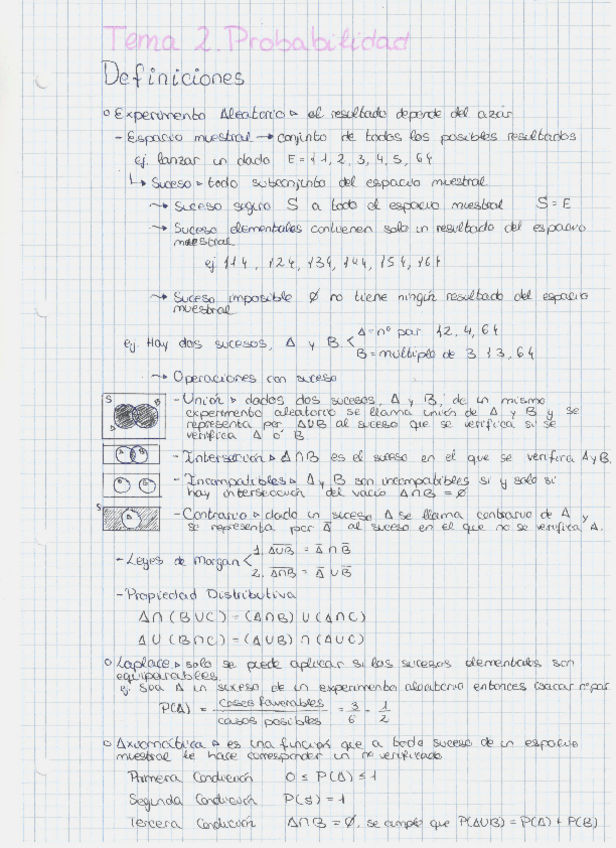 Tema 2. Probabilidad
Definiciones
o Experimento Aleatorio ▹ el resultado depende del azar
- Espacio muestral → conjunto de todos los posibles resultados
ej. lanzar un dado E = {1, 2, 3, 4, 5, 6}
↳ Suceso ▹ todo subconjunto del espacio muestral
⤳ Suceso seguro S a todo el espacio muestral S = E
⤳ Suceso elementales contienen solo un resultado del espacio
muestral
ej {1}, {2}, {3}, {4}, {5}, {6}
⤳ Suceso imposible ∅ no tiene ningún resultado del espacio
muestral
ej. Hay dos sucesos, A y B < A = nº par {2, 4, 6}
B = múltiplo de 3 {3, 6}
⤳ Operaciones con suceso
S A B
- Unión ▹ dados dos sucesos, A y B, de un mismo
experimento aleatorio se llama unión de A y B y se
representa por A∪B al suceso que se verifica si se
verifica A ó B
- Intersección ▹ A∩B es el suceso en el que se verifica A y B.
- Incompatibles ▹ A y B son incompatibles si y solo si
hay intersección del vacío A∩B = ∅
- Contrario ▹ dado un suceso A se llama contrario de A y
se representa por A̅ al suceso en el que no se verifica A.
- Leyes de Morgan < 1. A̅∪̅B̅ = A̅ ∩ B̅
2. A̅∩̅B̅ = A̅ ∪ B̅
- Propiedad Distributiva
A∩(B∪C) = (A∩B) ∪ (A∩C)
A∪(B∩C) = (A∪B) ∩ (A∪C)
o Laplace ▹ solo se puede aplicar si los sucesos elementales son
equiparables.
ej. Sea A un suceso de un experimento aleatorio entonces (sacar nº par
P(A) = casos favorables / casos posibles = 3/6 = 1/2
o Axiomática ▹ es una función que a todo suceso de un espacio
muestral le hace corresponder un nº verificado
Primera Condición 0 ≤ P(A) ≤ 1
Segunda Condición P(S) = 1
Tercera Condición A∩B = ∅, se cumple que P(A∪B) = P(A) + P(B)